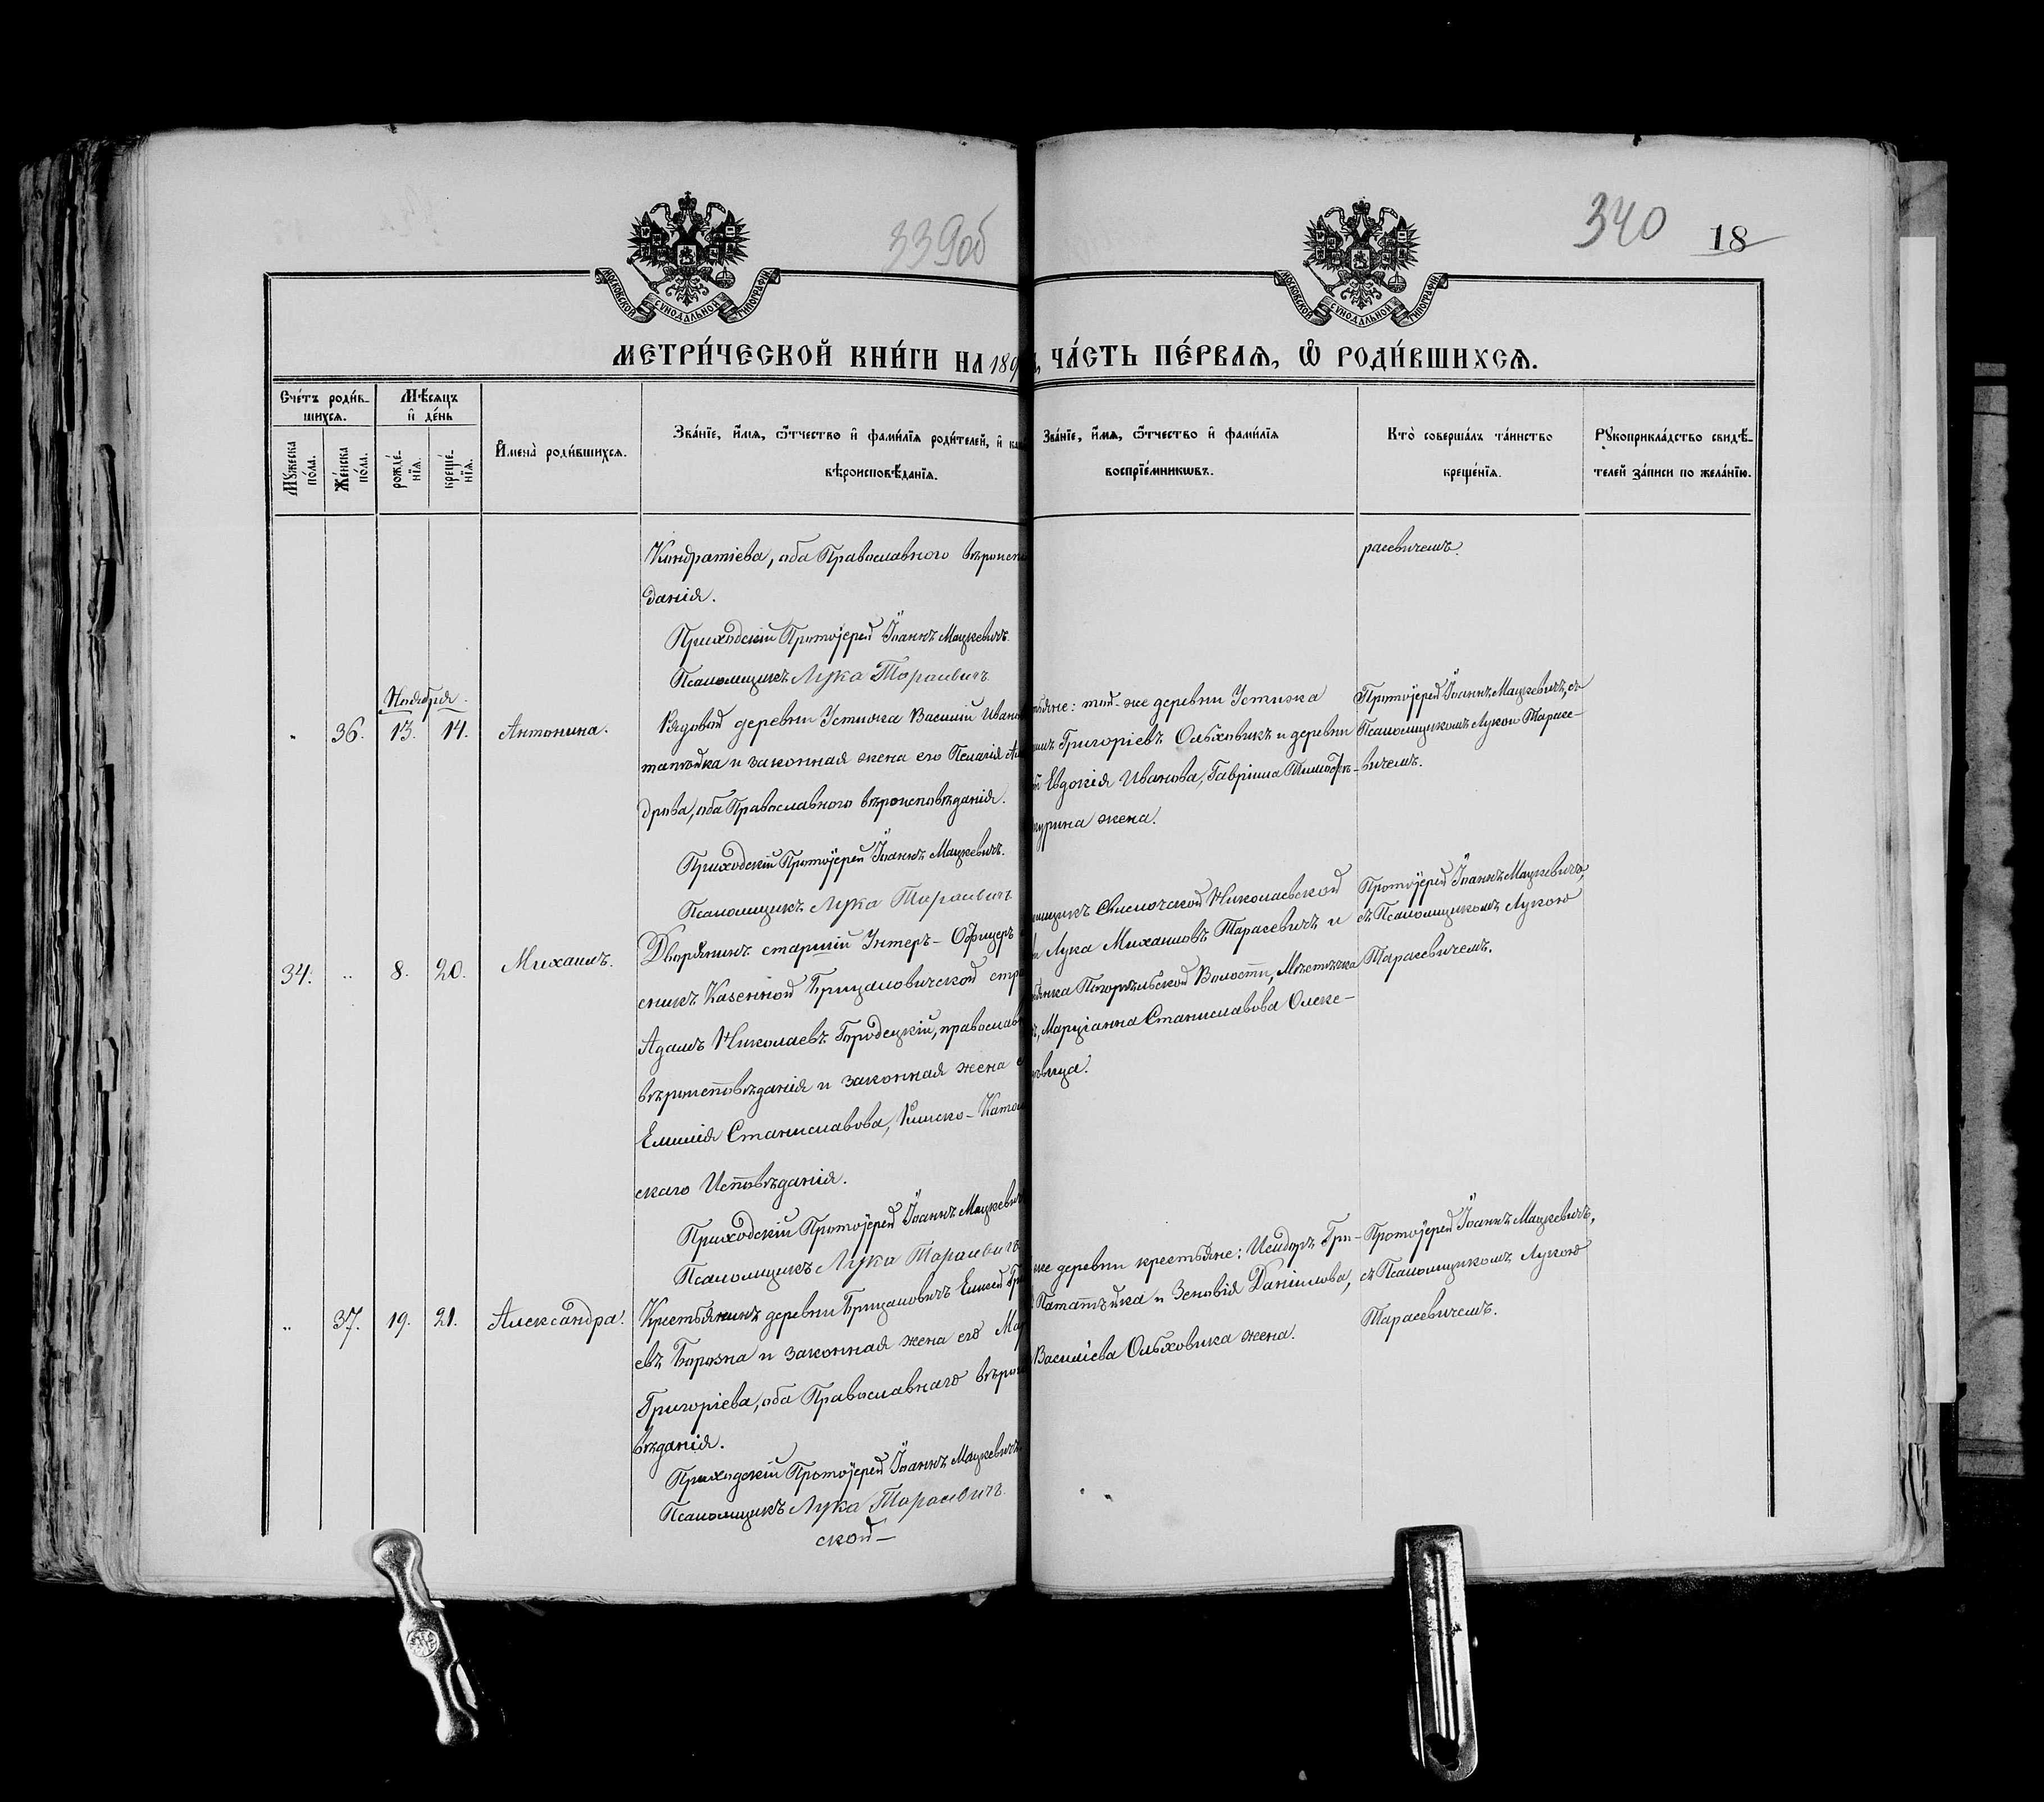 339об
340
18
МОСКОВСКОЙ СУНОДАЛЬНОЙ ТИПОГРАФІИ
МОСКОВСКОЙ СУНОДАЛЬНОЙ ТИПОГРАФІИ
МЕТРИ́ЧЕСКОЙ КНИ́ГИ НА 189
ЧА́СТЬ ПЕ́РВАѦ, Ѿ РОДИ́ВШИХСѦ.
Сче́тъ роди́в-
шихсѧ.
Мꙋжеска по́ла.
Же́нска по́ла.
Мѣ́сѧцъ
и҆ де́нь
рожде́-нїѧ.
креще́-нїѧ.
И҆мена̀ роди́вшихсѧ.
Зва́нїе, и҆́мѧ, ѻ҆́тчество и҆ фами́лїѧ роди́телей, и҆
вѣроисповѣ́данїѧ.
Зва́нїе, и҆́мѧ, ѻ҆́тчество и҆ фами́лїѧ
воспрїе́мникѡвъ.
Кто̀ соверша́лъ та́инство
креще́нїѧ.
Рꙋкоприкла́дство свидѣ́-
телей за́писи по жела́нїю.
Кондратіева, оба Православного вѣроиспо
данія.
Приходскій Протоіерей Іоаннъ Мацкевичъ.
Псаломщикъ Лука Тарасевичъ
расевичемъ.
Ноября.
36. 13. 14. Антонина.
Рядовой деревни Устиока Василій Ивано
and Пелагія
дрова, оба Православного вѣроисповѣданія.
Приходскій Протоіерей Іоаннъ Мацкевичъ.
Псаломщикъ Лука Тарасевичъ
той-же деревни Устиока
Григоріевъ Ольховикъ и деревни
Евдокія Иванова, Гавріила Тимоѳѣ-
жена.
Протоіерей Іоаннъ Мацкевичъ, съ
Псаломщикомъ Лукою Тарасе-
вичемъ.
34. „ 8. 20. Михаилъ.
Дворянинъ старшій Унтеръ-Офицеръ
сникъ Казенной Брицаловичской стра
Адамъ Николаевъ Городецкій, правосла
вѣроисповѣданія и законная жена е
Емилія Станиславова, Римско-Като
скаго Исповѣданія.
Приходскій Протоіерей Іоаннъ Мацкевич
Псаломщикъ Лука Тарасевичъ
Свислочской Николаевской
Лука Михаиловъ Тарасевичъ и
Погорѣльской Волости, Мѣстечка
Марціанна Станиславова Олехе-
Протоіерей Іоаннъ Мацкевичъ,
съ Псаломщикомъ Лукою
Тарасевичемъ.
„ 37. 19. 21. Александра.
Крестьянинъ деревни Брицаловичъ Елисей Гри
евъ Борозна и законная жена его Мар
Григоріева, оба Православнаго вѣрои
вѣданія.
Приходскій Протоіерей Іоаннъ Мацкевичъ
Псаломщикъ Лука Тарасевичъ.
ской-
же деревни крестьяне: Исидоръ Гри-
и Зеновія Даніилова,
Василіева Ольховика жена.
Протоіерей Іоаннъ Мацкевичъ,
съ Псаломщикомъ Лукою
Тарасевичемъ.